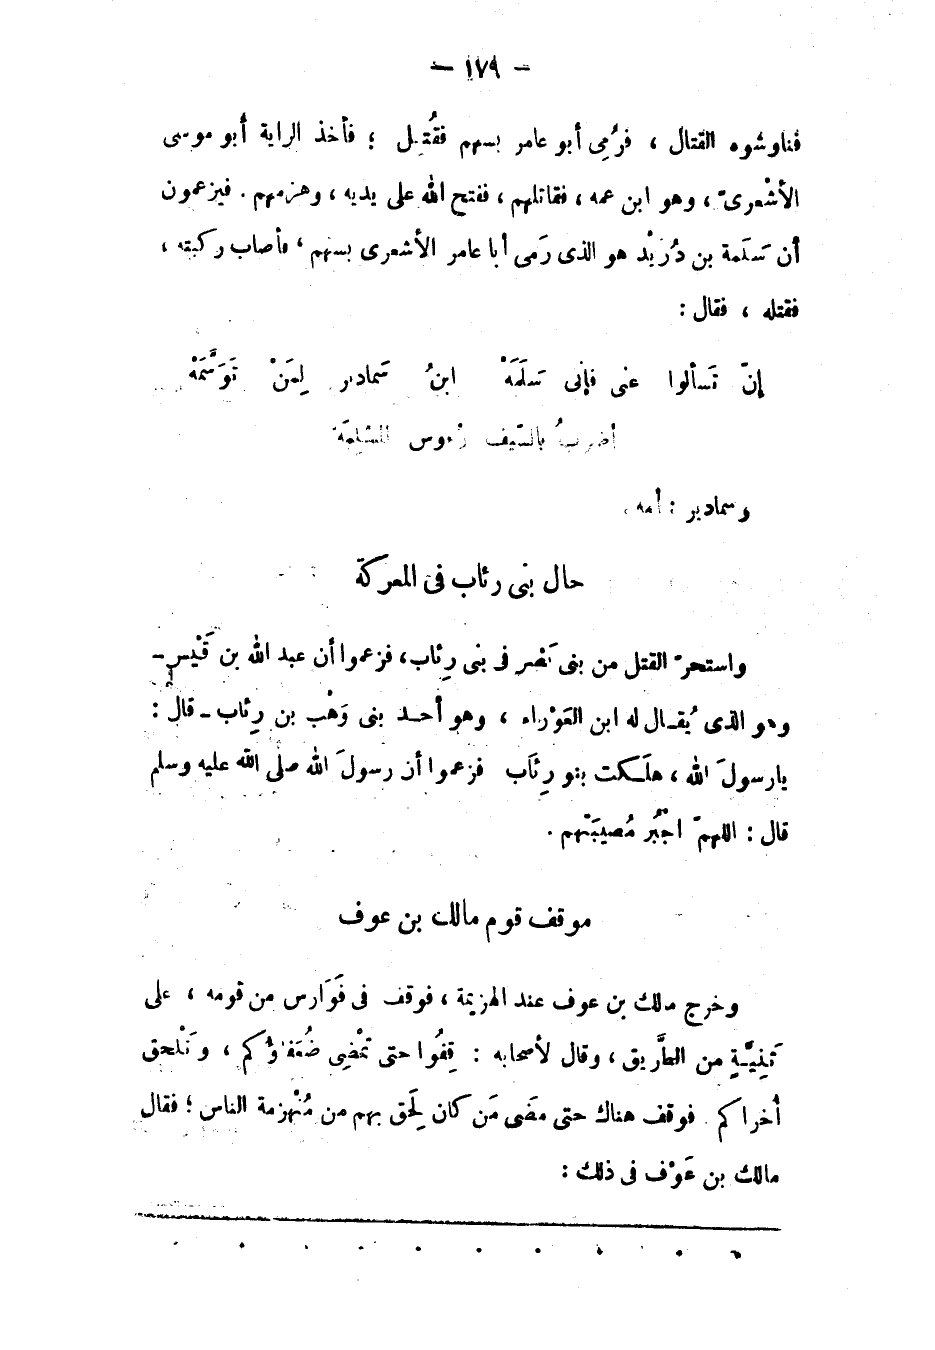 – ١٧٩ –
فناوشوه القتال ، فرُمِى أبو عامر بسهم فقُتِـل ؛ فأخذ الراية أبو موسى
الأشْعرىّ ، وهو ابن عمه ، فقاتلهم ، ففتح الله على يديه ، وهزمهم . فيزعمون
أن سَلَمة بن دُرَيْد هو الذى رَمى أبا عامر الأشعرى بسهم ، فأصاب ركبته ،
فقتله ، فقال :
إنّ تَسألوا عنى فإنى سَلَمَهْ ابنُ سَمادير لِمَنْ تَوَسَّمَهْ
أضربُ بالسّيف رُءوس المسْلِمَهْ
وسمادير : أمه .
حال بنى رئاب فى المعركة
واستحرّ القتل من بنى نَصْر فى بنى رِئاب ، فزعموا أن عبد الله بن قَيْس ــ
وهو الذى يُقـال له ابن العَوْراء ، وهو أحـد بنى وَهْب بن رِئاب ــ قال :
يارسولَ الله ، هلَـكت بنو رِئَاب فزعموا أن رسولَ الله صلى الله عليه وسلم
قال : اللهمّ اجْبُر مُصيبَتَهم .
موقف قوم مالك بن عوف
وخرج مالك بن عوف عند الهزيمة ، فوقف فى فَوَارس من قومه ، على
ثَنِيَّـةٍ من الطَّريق ، وقال لأصحابه : قِفُوا حتى تَمْضِى ضُعَفاؤكم ، وتَلْحق
أخراكم . فوقف هناك حتى مضَى مَن كان لَحِق بهم من مُنْهزمة الناس ؛ فقال
مالك بن عَوْف فى ذلك :